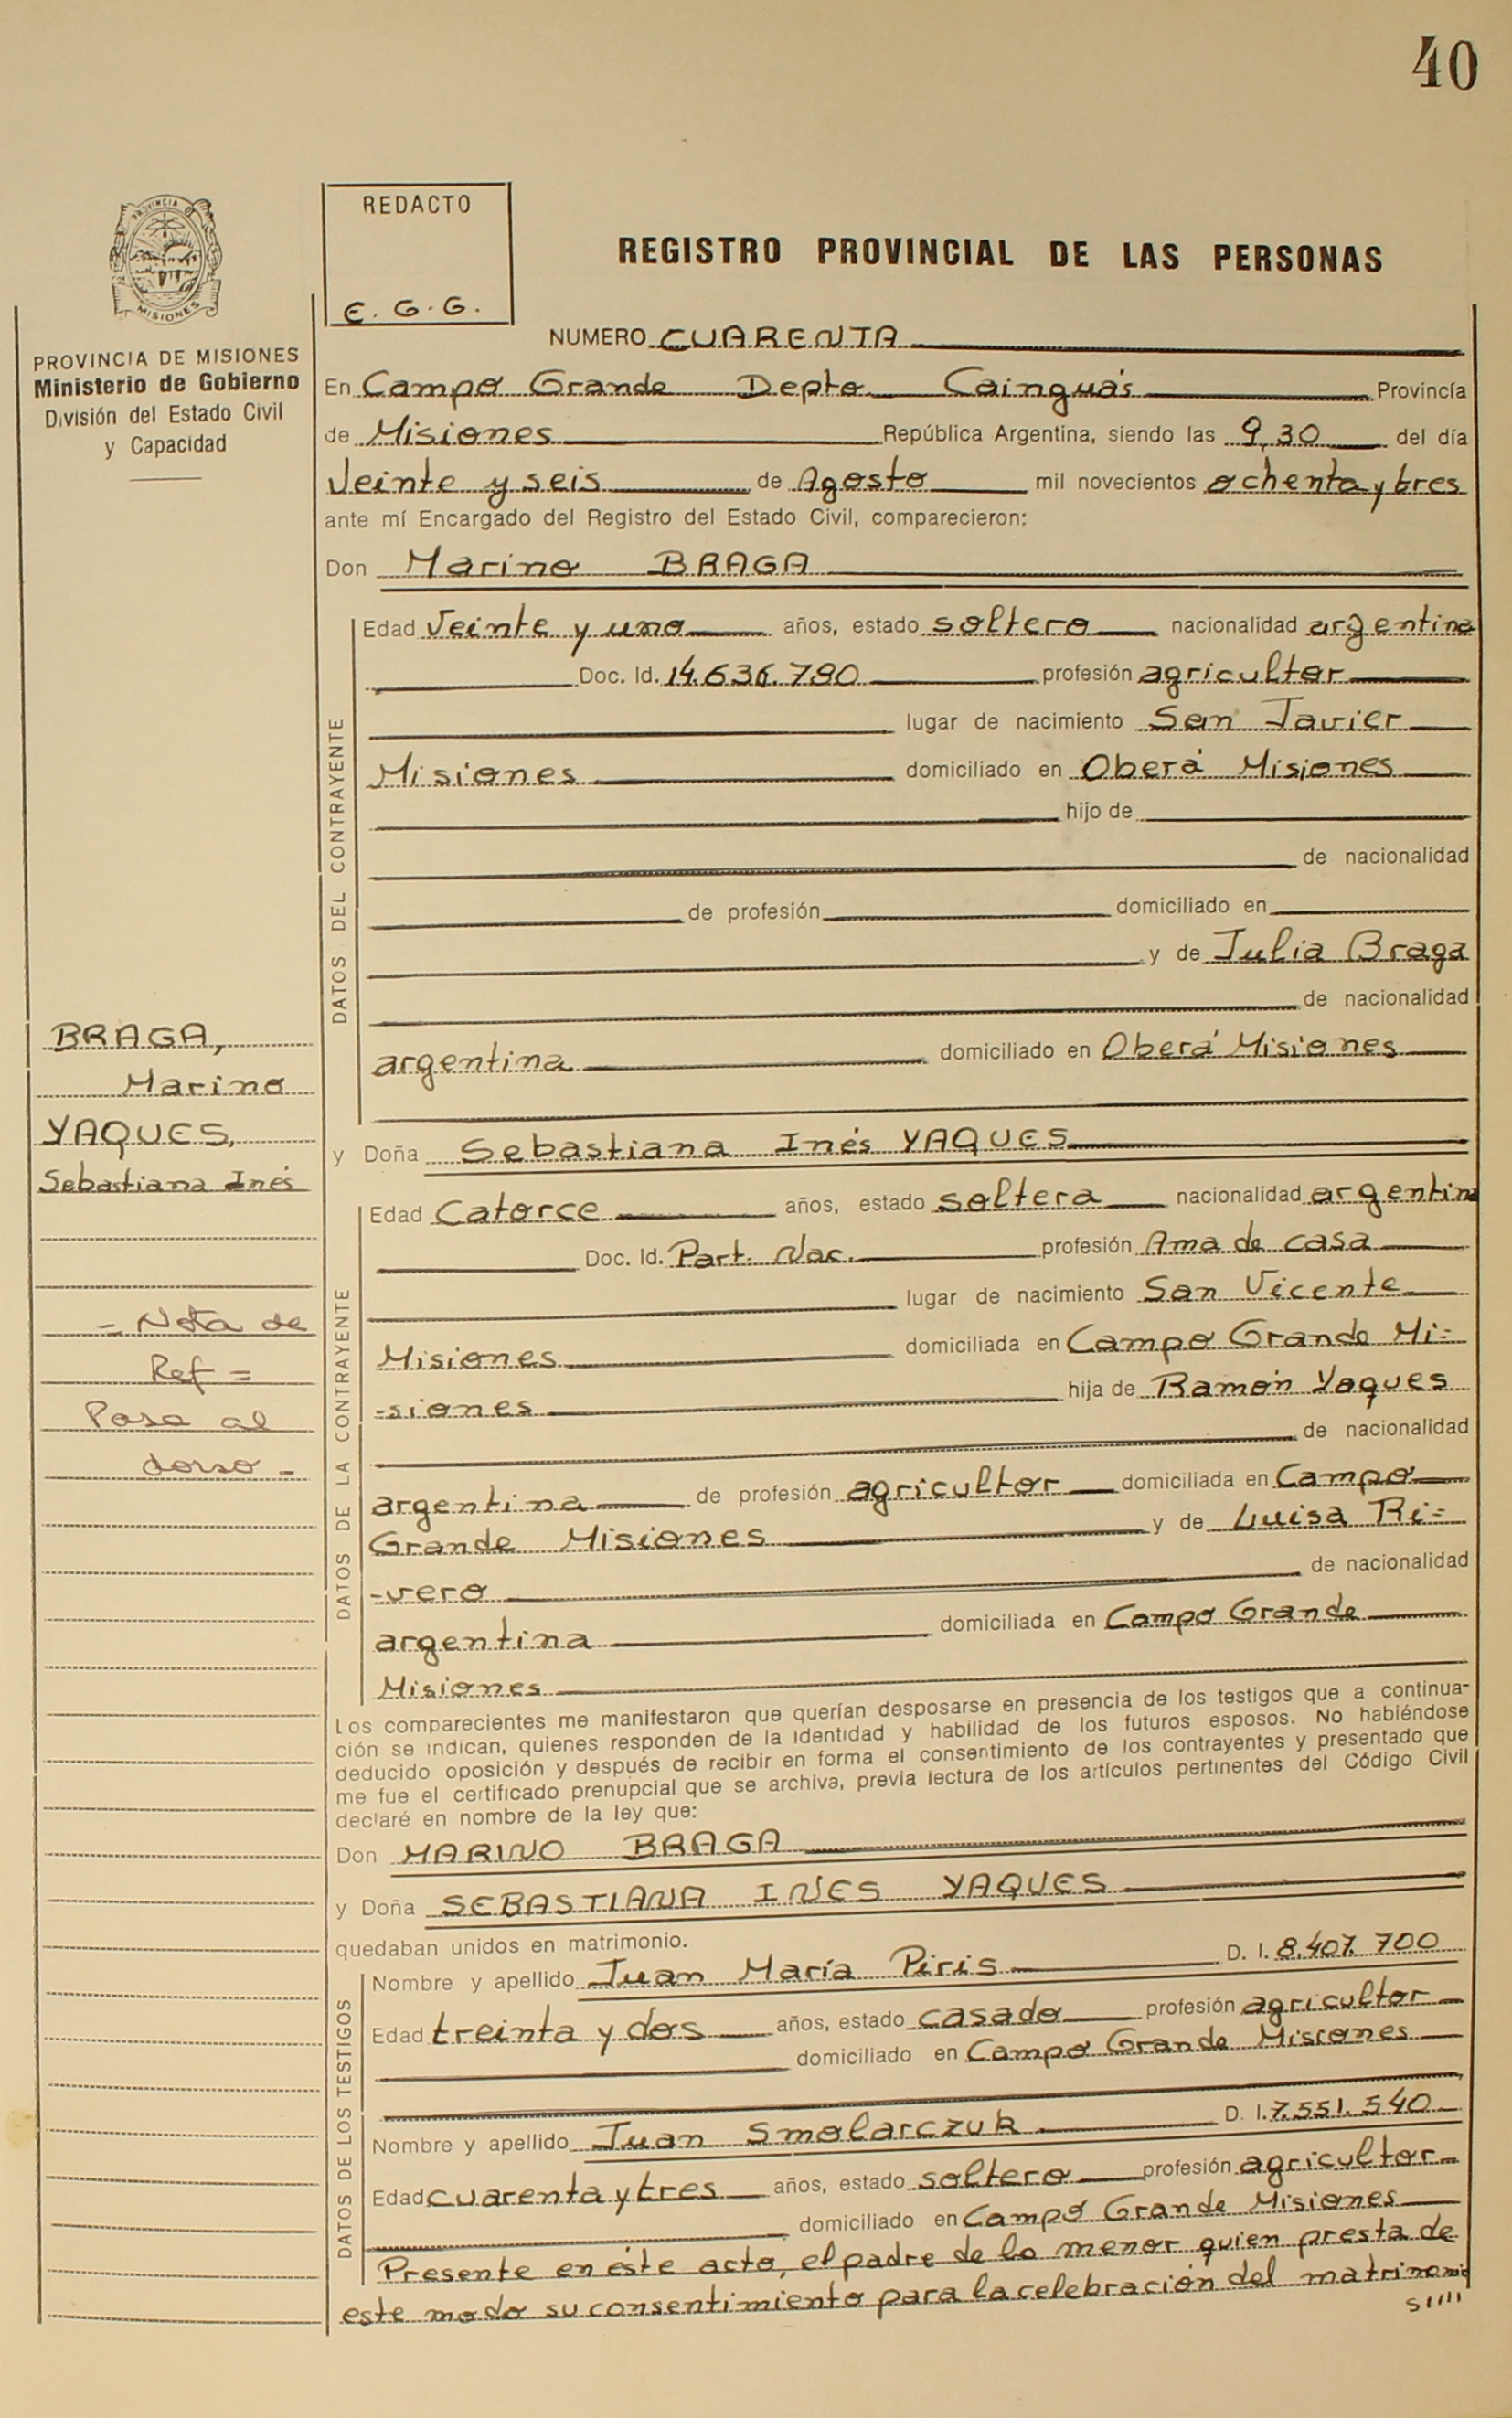 40
PROVINCIA DE MISIONES
REDACTO
E. G. G.
REGISTRO PROVINCIAL DE LAS PERSONAS
PROVINCIA DE MISIONES
Ministerio de Gobierno
División del Estado Civil
y Capacidad
BRAGA,
Marino
YAQUES,
Sebastiana Inés
- Nota de
Ref =
Pasa al
dorso -
NUMERO CUARENTA
En Campo Grande Depto Cainguás Provincia
de Misiones República Argentina, siendo las 9,30 del día
Veinte y seis de Agosto mil novecientos ochenta y tres
ante mí Encargado del Registro del Estado Civil, comparecieron:
Don Marino BRAGA
DATOS DEL CONTRAYENTE
Edad Veinte y uno años, estado soltero nacionalidad argentina
Doc. Id. 14.636.780 profesión agricultor
lugar de nacimiento San Javier
Misiones domiciliado en Oberá Misiones
hijo de
de nacionalidad
de profesión domiciliado en
y de Julia Braga
de nacionalidad
argentina domiciliado en Oberá Misiones
y Doña Sebastiana Inés YAQUES
DATOS DE LA CONTRAYENTE
Edad Catorce años, estado soltera nacionalidad argentina
Doc. Id. Part. Nac. profesión Ama de casa
lugar de nacimiento San Vicente
Misiones domiciliada en Campo Grande Mi=
-siones hija de Ramón Yaques
de nacionalidad
argentina de profesión agricultor domiciliada en Campo
Grande Misiones y de Luisa Ri=
-vero de nacionalidad
argentina domiciliada en Campo Grande
Misiones
Los comparecientes me manifestaron que querían desposarse en presencia de los testigos que a continua-
ción se indican, quienes responden de la identidad y habilidad de los futuros esposos. No habiéndose
deducido oposición y después de recibir en forma el consentimiento de los contrayentes y presentado que
me fue el certificado prenupcial que se archiva, previa lectura de los artículos pertinentes del Código Civil
declaré en nombre de la ley que:
Don MARINO BRAGA
y Doña SEBASTIANA INÉS YAQUES
quedaban unidos en matrimonio.
DATOS DE LOS TESTIGOS
Nombre y apellido Juan María Piris D. I. 8.407.700
Edad treinta y dos años, estado casado profesión agricultor
domiciliado en Campo Grande Misiones
Nombre y apellido Juan Smolarczuk D. I. 7.551.540
Edad cuarenta y tres años, estado soltero profesión agricultor
domiciliado en Campo Grande Misiones
Presente en éste acto, el padre de la menor quien presta de
este modo su consentimiento para la celebración del matrimonio